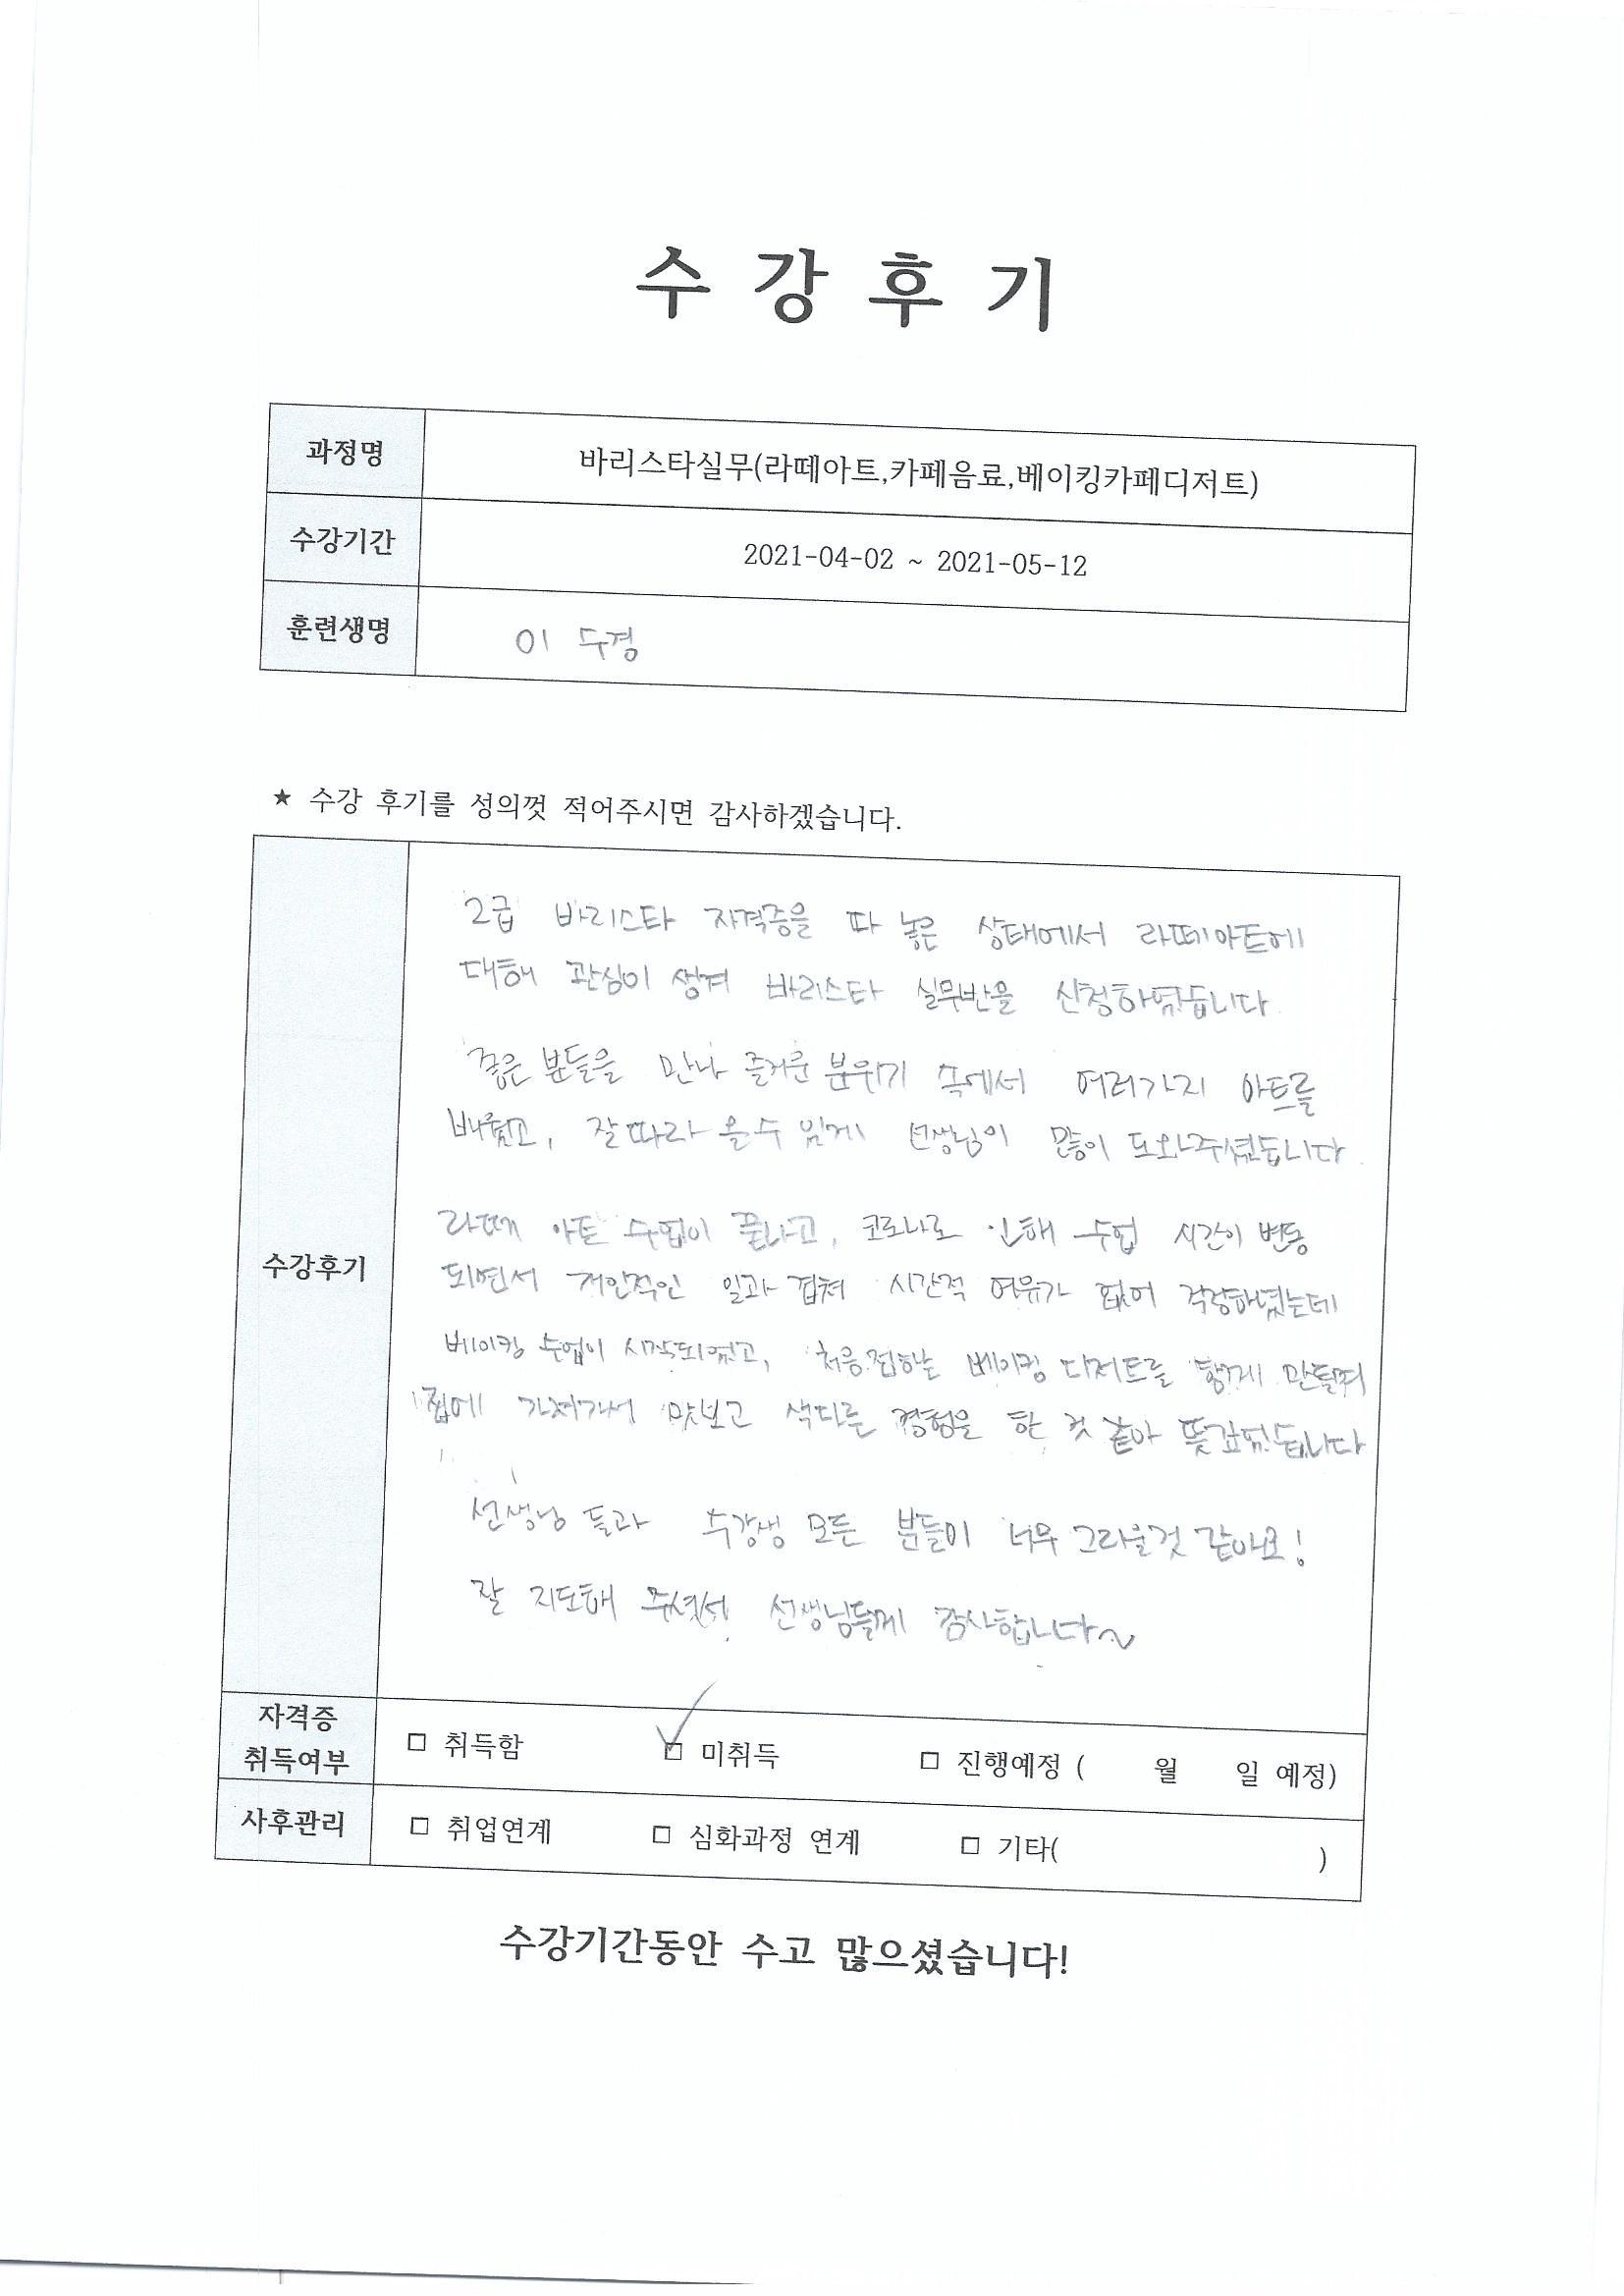 수 강 후 기
과정명 바리스타실무(라떼아트,카페음료,베이킹카페디저트)
수강기간 2021-04-02 ~ 2021-05-12
훈련생명 이 두경
★ 수강 후기를 성의껏 적어주시면 감사하겠습니다.
수강후기
2급 바리스타 자격증을 따 놓은 상태에서 라떼아트에
대해 관심이 생겨 바리스타 실무반을 신청하였습니다
좋은 분들을 만나 즐거운 분위기 속에서 여러가지 아트를
배웠고, 잘따라 올수 있게 선생님이 많이 도와주셨습니다.
라떼 아트 수업이 끝나고, 코로나로 인해 수업 시간이 변동
되면서 개인적인 일과 겹쳐 시간적 여유가 없어 걱정하였는데
베이킹 수업이 시작되었고, 처음접하는 베이킹 디저트를 함께 만들며
집에 가져가서 맛보고 색다른 경험을 한 것 같아 뜻깊었습니다
선생님 들과 수강생 모든 분들이 너무 그리울것 같아요!
잘 지도해 주셔서 선생님들께 감사합니다~
자격증 취득여부 □ 취득함 □ 미취득 □ 진행예정 ( 월 일 예정)
사후관리 □ 취업연계 □ 심화과정 연계 □ 기타( )
수강기간동안 수고 많으셨습니다!